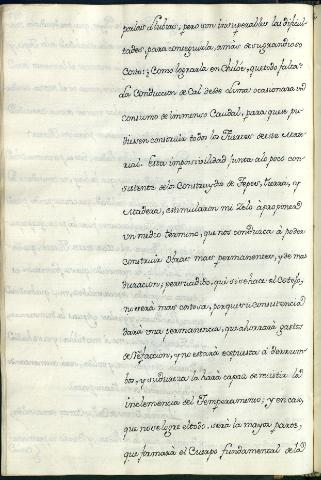 paises lluvias, pero son insuperables las dificul-
tades, para conseguirla, a mas de su grandioso
Costo; Como lograrla en Chiloé, que todo falta:
La Conduccion de Cal desde Lima ocasionara un
consumo de immenso Caudal, para que se pu-
diesen construir todos los Fuertes de este Mate-
rial. Esta imposivilidad junta a lo poco con-
sistente de la Construyción de Tepes, tierra, y
Madera, estimularon mi Zelo à proponer
un medio termino, que nos conduzca à poder
construir Obras mas permanentes, y de mas
duracion; persuadido, que si se hace el Cotejo,
no será mas costosa, porque su consistencia
dará una permanencia, que ahorrará gastos
de refaccion, y no estará expuesta à derrum-
bos, y su dureza la hará capaz de resistir la
inclemencia del Temperamento; y en caso,
que no se logre el todo, será la mayor parte,
que formará el Cuerpo fundamental de la